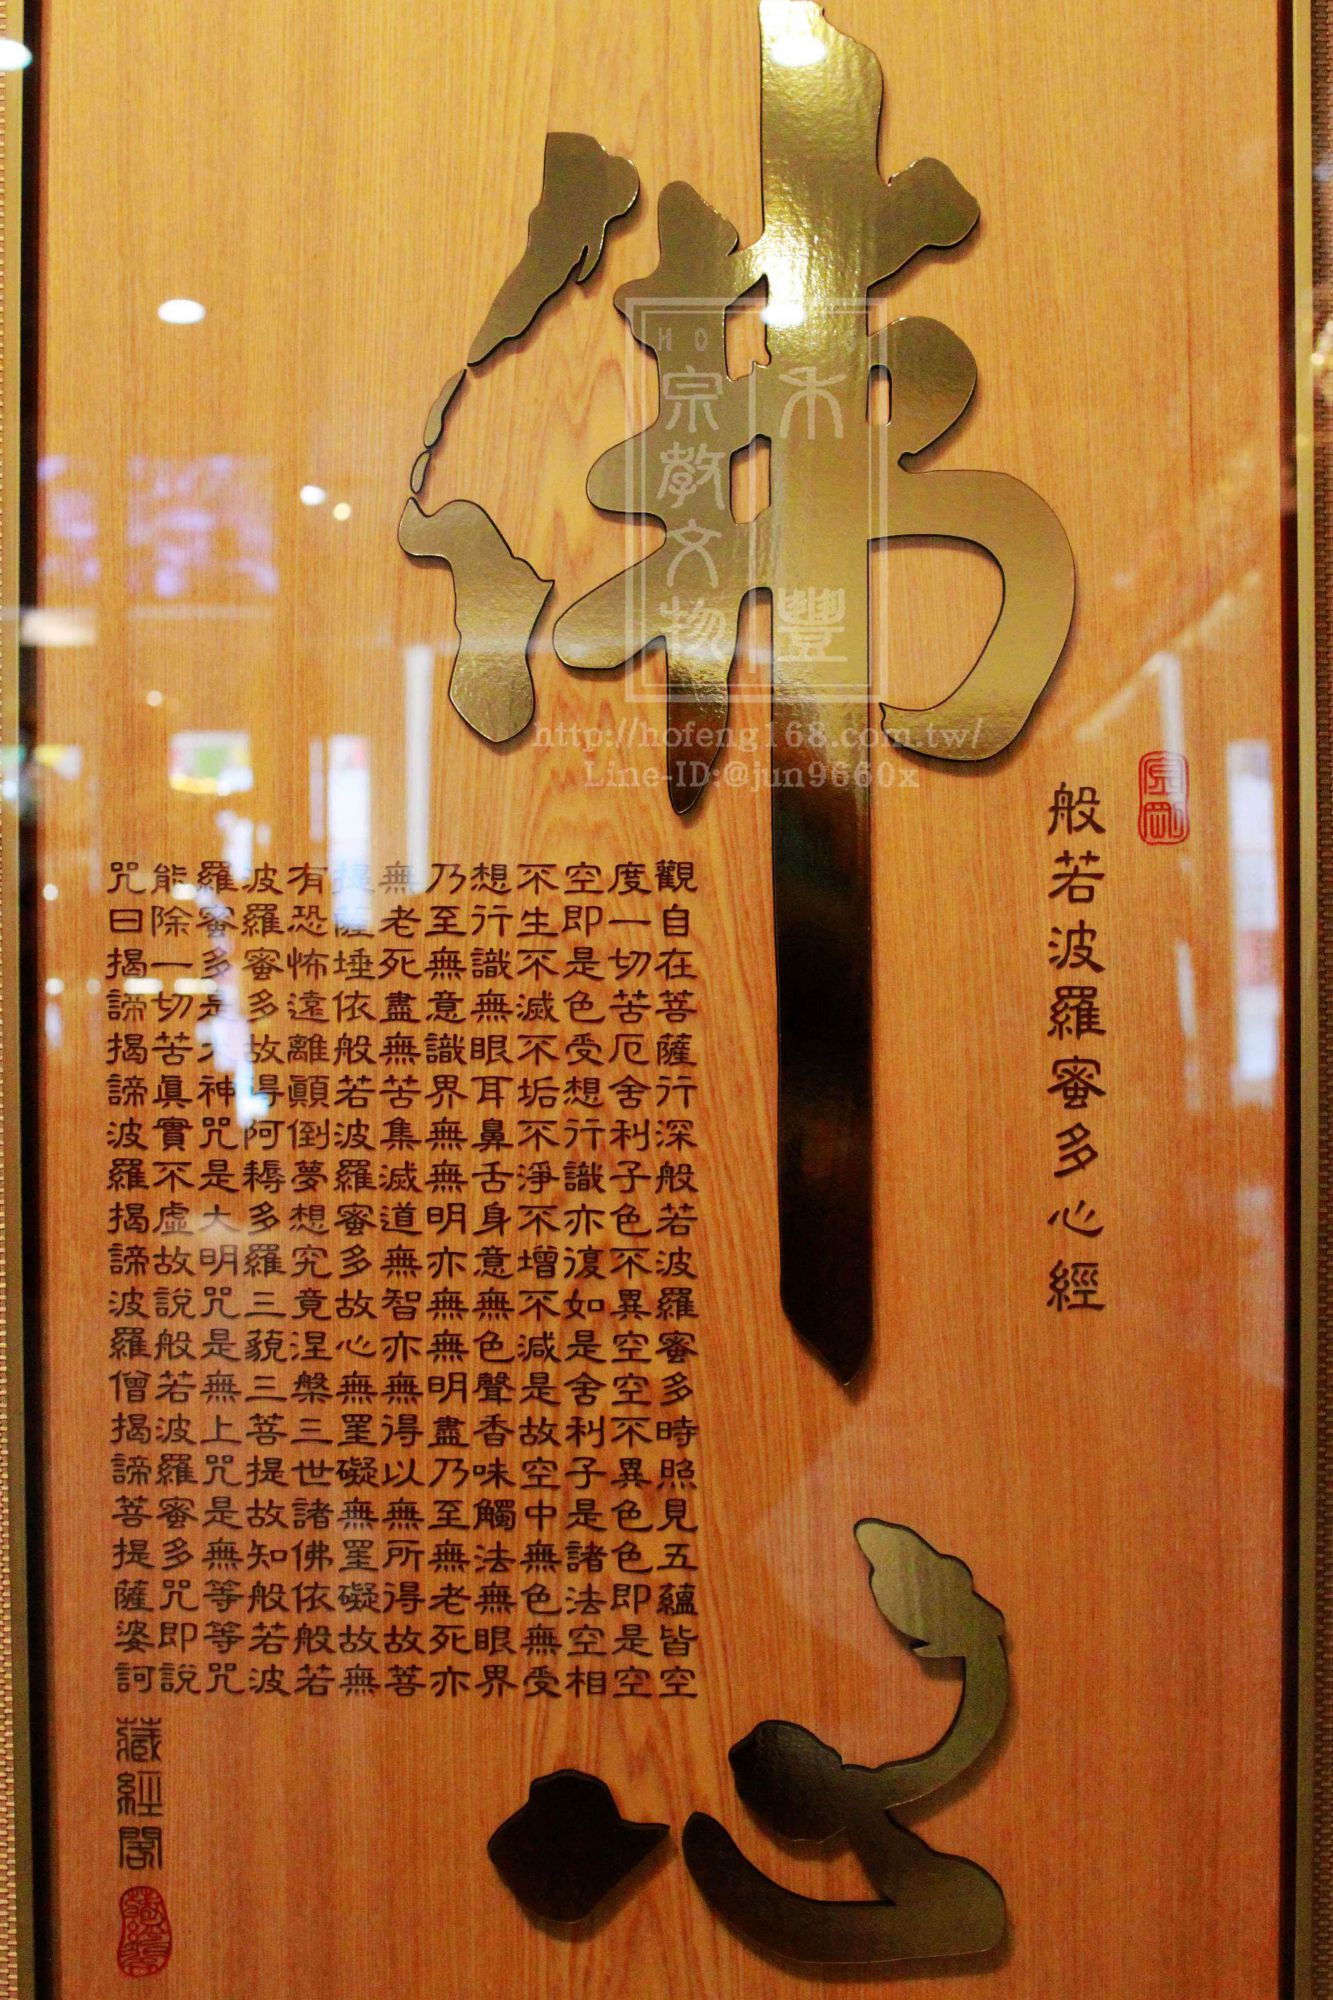 佛心
般若波羅蜜多心經
觀自在菩薩行深般若波羅蜜多時照見五蘊皆空
度一切苦厄舍利子色不異空空不異色色即是空
空即是色受想行識亦復如是舍利子是諸法空相
不生不滅不垢不淨不增不減是故空中無色無受
想行識無眼耳鼻舌身意無色聲香味觸法無眼界
乃至無意識界無無明亦無無明盡乃至無老死亦
無老死盡無苦集滅道無智亦無得以無所得故菩
提薩埵依般若波羅蜜多故心無罣礙無罣礙故無
有恐怖遠離顛倒夢想究竟涅槃三世諸佛依般若
波羅蜜多故得阿耨多羅三藐三菩提故知般若波
羅蜜多是大神咒是大明咒是無上咒是無等等咒
能除一切苦真實不虛故說般若波羅蜜多咒即說
咒曰揭諦揭諦波羅揭諦波羅僧揭諦菩提薩婆訶
藏經閣
禾豐
宗教文物
http://hofeng168.com.tw/
Line-ID:@jun9660x